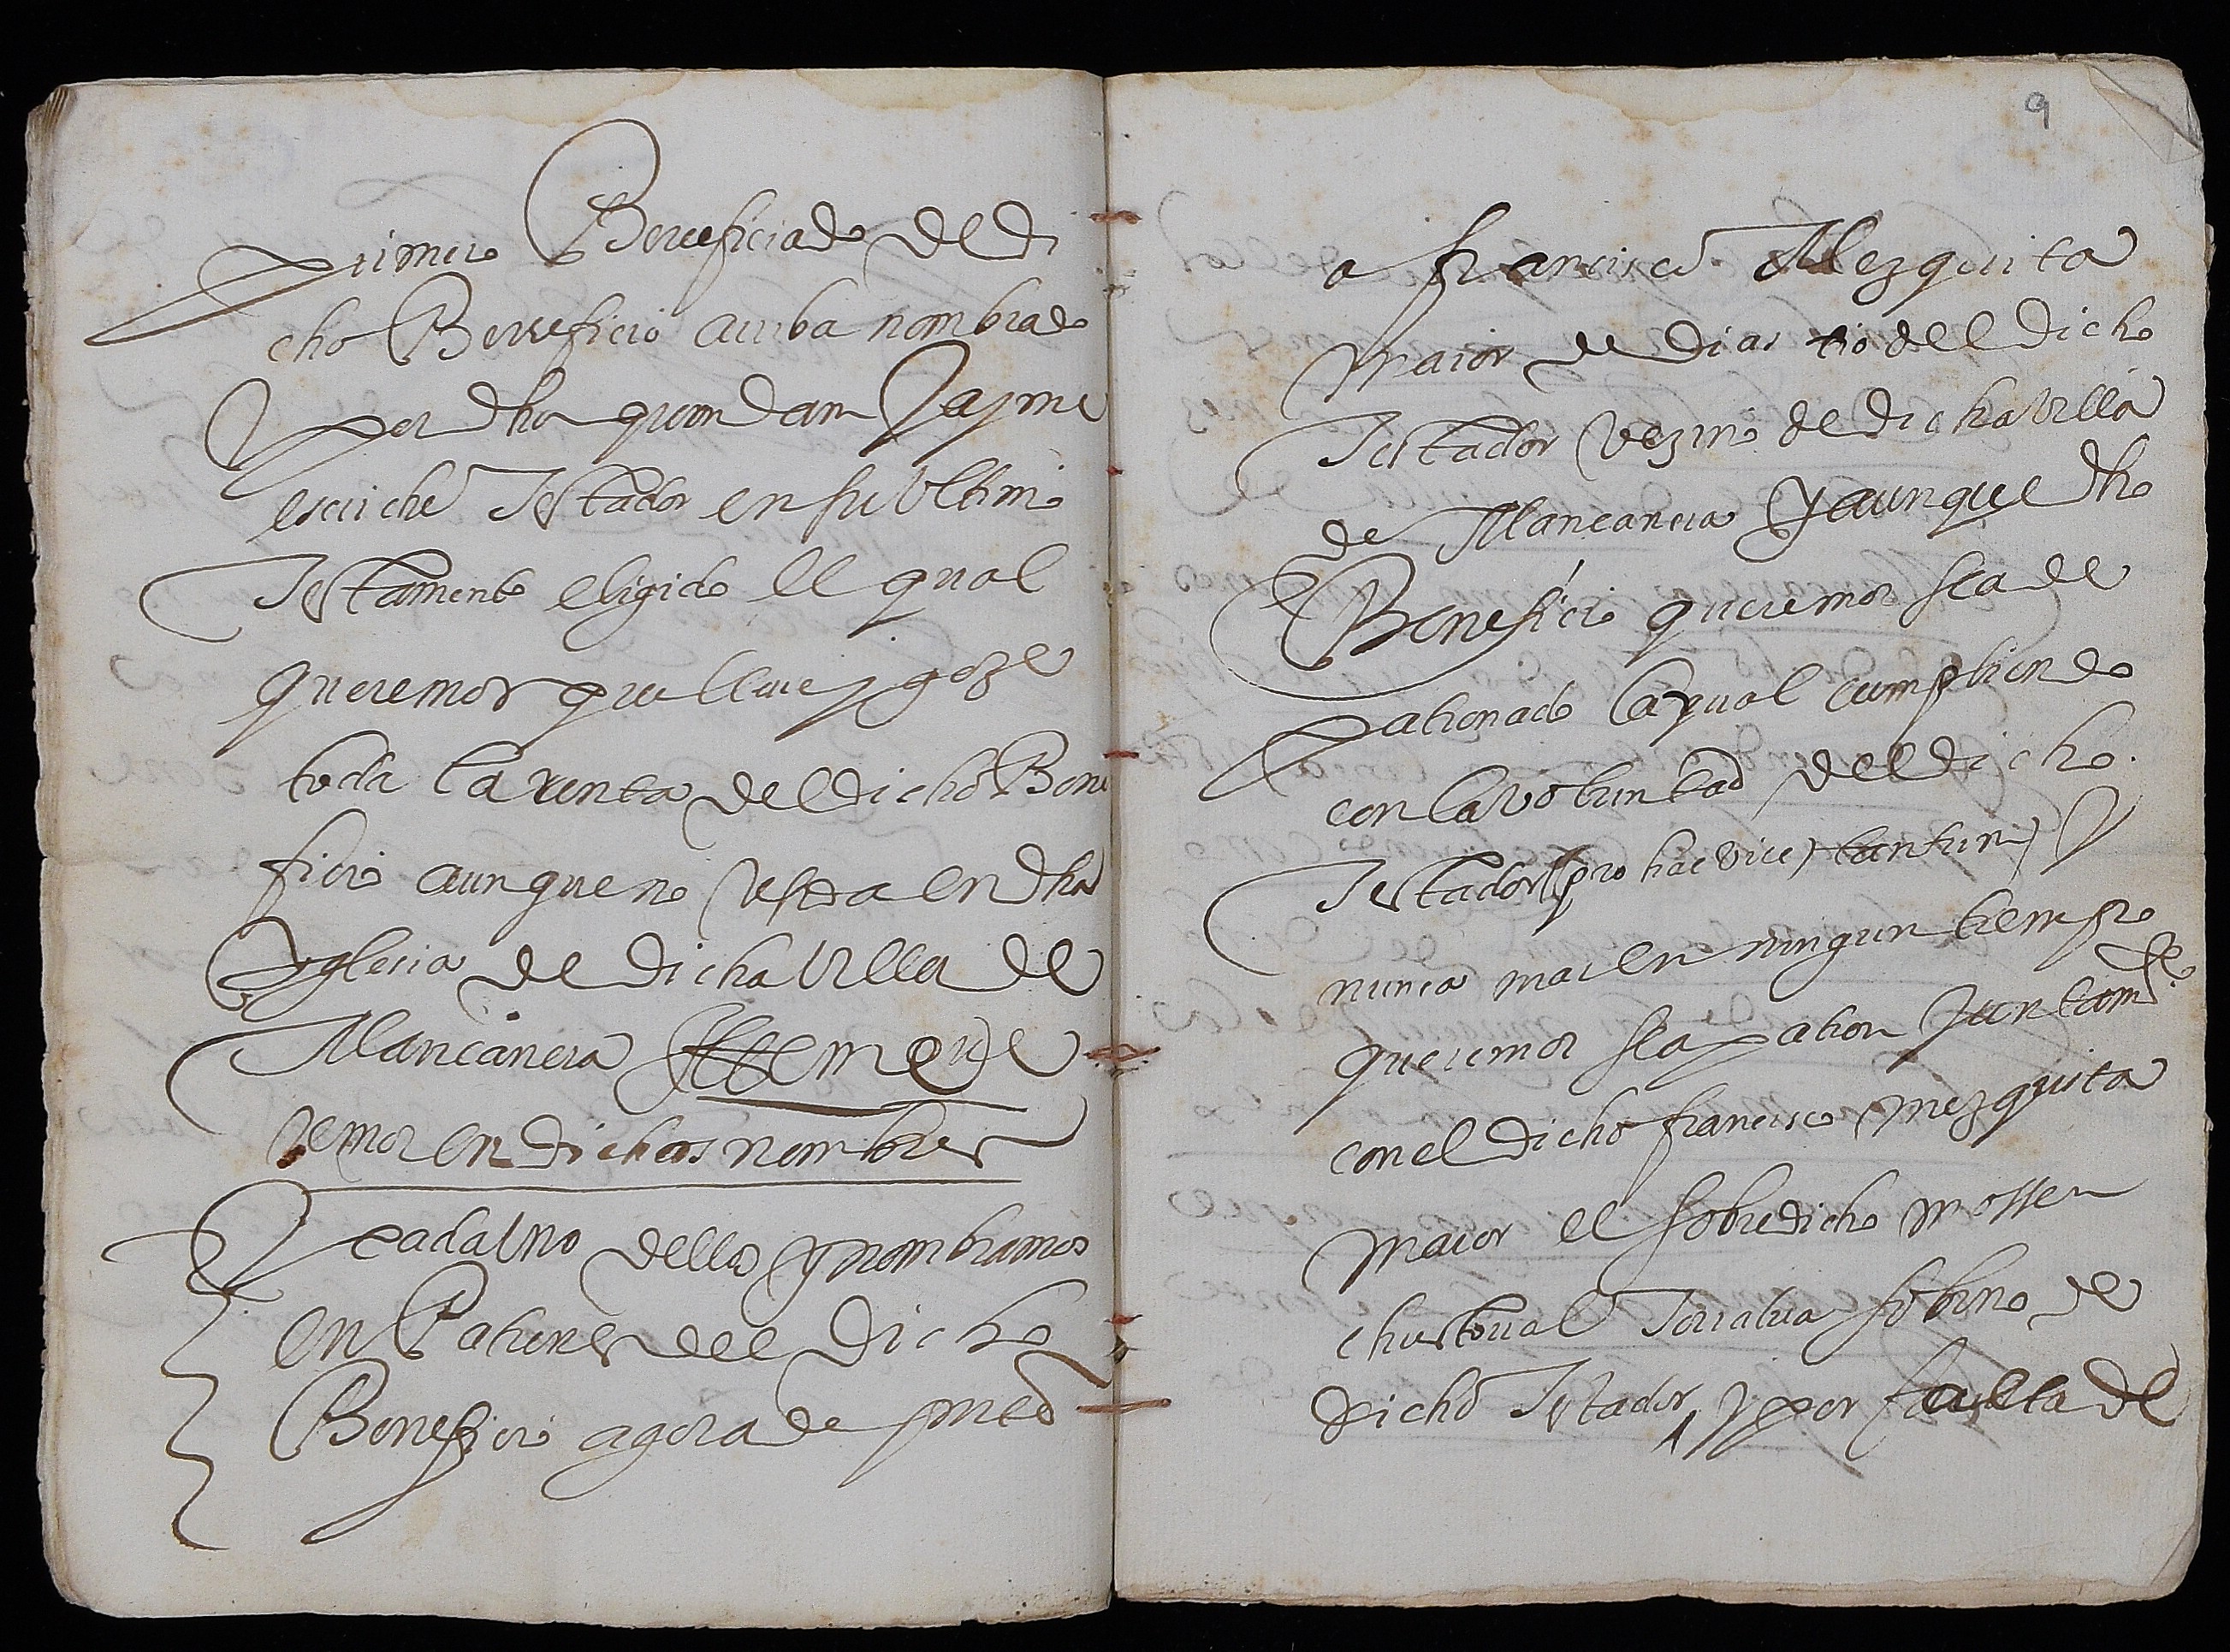 primero Beneficiado del di
cho Beneficio arriba nombrado
y por dho quondam Jayme
escriche Testador en su Ultimo
Testamento eligido el qual
queremos que lleue y goze
toda la renta del dicho Bene
ficio aunque no resida en dha
yglesia de dicha Villa de
Mançanera Ittem que
remos en dichos nombres
y cada Uno dellos y nombramos
en Patrones del dicho
Beneficio agora de pnte
9
a francisco Mezquita
maior de dias tio del dicho
Testador vezino de dicha Villa
de Mançanera y aunque dho
Beneficio queremos sea de
patronado la qual cumpliendo
con la voluntad del dicho
Testador (pro hac vice tantum) y
nunca mas en ningun tiempo
queremos sea patron Juntamte
con el dicho francisco mezquita
maior el sobredicho mossen
christoual Torralua sobrino de
dicho Testador y por falta de